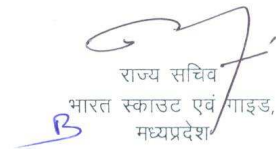 राज्य सचिव
भारत स्काउट एवं गाइड,
B मध्यप्रदेश